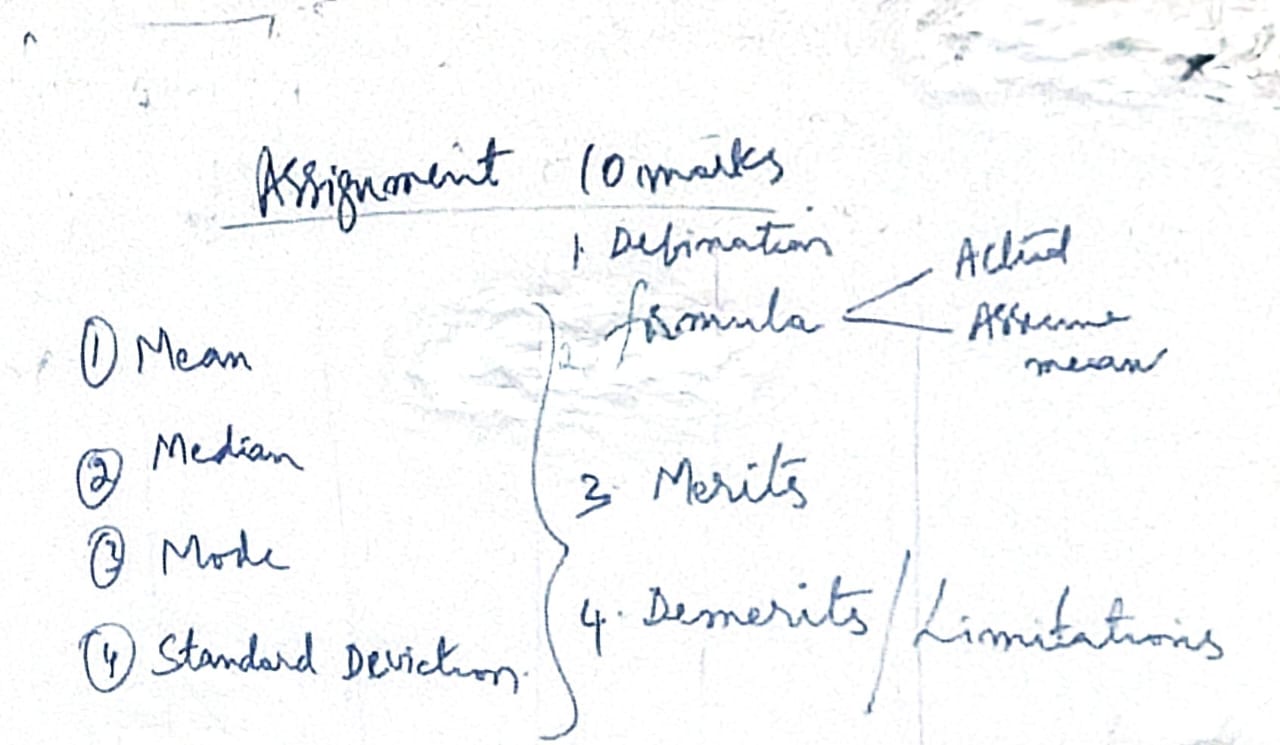 Assignment 10 marks
1. Defination
2. formula
Actual
Assume
mean
① Mean
② Median
③ Mode
④ Standard Deviction
3. Merits
4. Demerits / Limitations